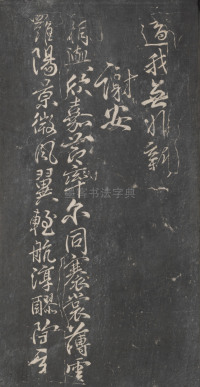 適我無非新
謝安
相與欣嘉節率爾同褰裳薄雲
羅陽景微風翼輕航淳醪陶
书法字典